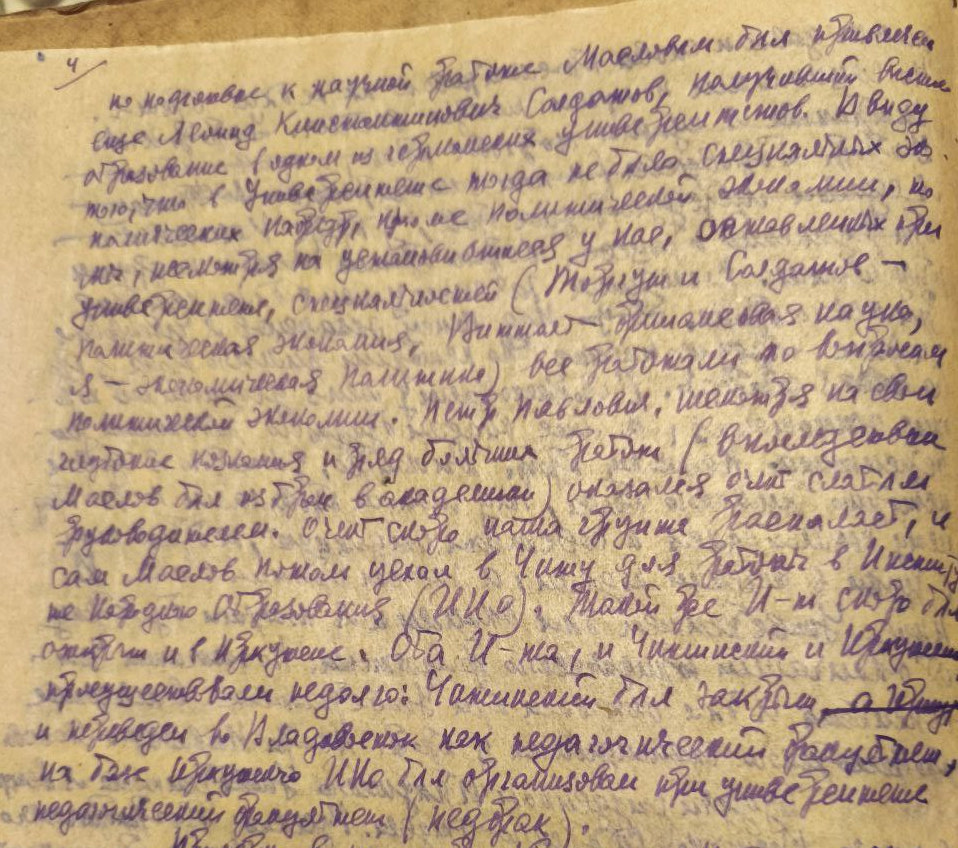 4
по подготовке к научной работе Масловым был привлечен
еще Леонид Константинович Солдатов, получивший высшее
образование в одном из германских университетов. Ввиду
того, что в Университете тогда не было специальных эко-
номических кафедр, кроме политической экономии, но
мы, несмотря на установившиеся у нас, оставленных при
университете, специальности ( и Солдатов –
политическая экономия, – финансовая наука,
я – экономическая политика) все работали по вопросам
политической экономии. Петр Павлович, несмотря на свои
глубокие познания и ряд больших работ (впоследствии
Маслов был избран в академики) оказался очень слабым
руководителем. Очень скоро наша группа распалась, и
сам Маслов потом уехал в Читу для работы в Институ-
те народного образования (ИНО). Такой же И-т скоро был
открыт и в Иркутске. Оба И-та, и Читинский и Иркутский
просуществовали недолго: Читинский был закрыт, а Иркут
и переведен во Владивосток как педагогический факультет,
на базе Иркутского ИНО был организован при университете
педагогический факультет (педфак).